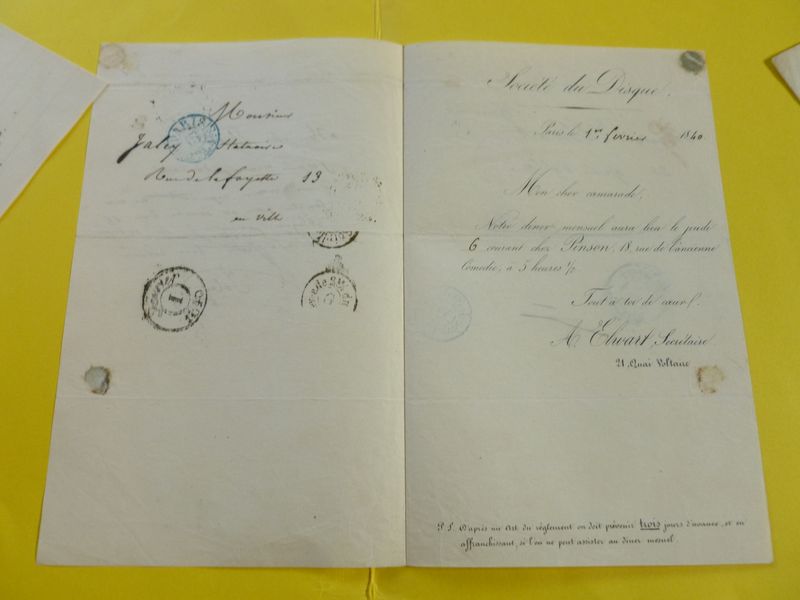 Monsieur
Jaley Statuaire
Rue de la fayette 13
en ville
PARIS
1
Société du Disque.
Paris le 1er fevrier 1840
Mon cher camarade,
Notre diner mensuel aura lieu le jeudi
6 courant chez Pinson, 18, rue de l'ancienne
Comedie, à 5 heures ½
Tout à toi de cœur!
A. Elwart, Secrétaire.
21, Quai Voltaire
P.S. D'après un Art du règlement on doit prévenir trois jours d'avance, et en
affranchissant, si l'on ne peut assister au diner mensuel.